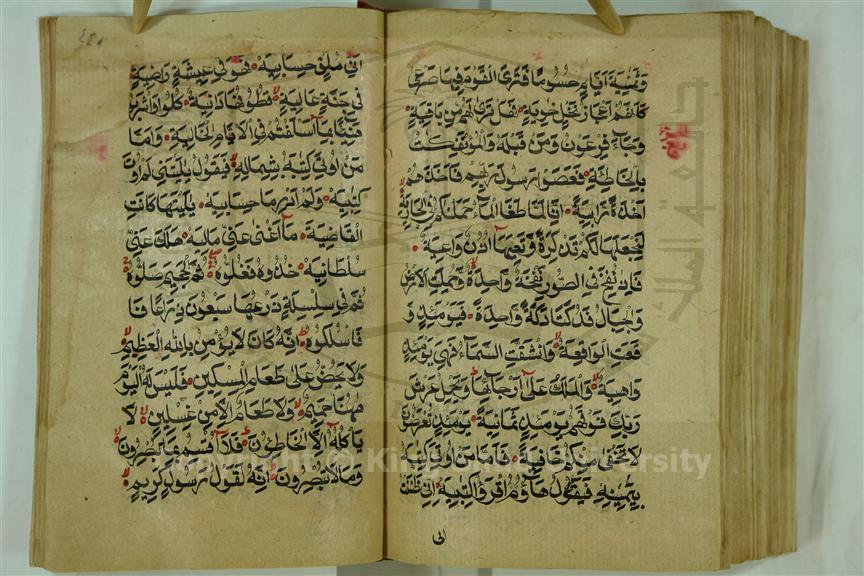 وَثَمٰنِيَةَ اَيَّامٍ حُسُومًا فَتَرَى الْقَوْمَ فِيهَا صَرْعٰى
كَاَنَّهُمْ اَعْجَازُ نَخْلٍ خَاوِيَةٍ فَهَلْ تَرٰى لَهُمْ مِنْ بَاقِيَةٍ
وَجَآءَ فِرْعَوْنُ وَمَنْ قَبْلَهُ وَالْمُؤْتَفِكٰتُ
بِالْخَاطِئَةِ فَعَصَوْا رَسُولَ رَبِّهِمْ فَاَخَذَهُمْ
اَخْذَةً رَابِيَةً اِنَّا لَمَّا طَغَا الْمَآءُ حَمَلْنَاكُمْ فِي الْجَارِيَةِ
لِنَجْعَلَهَا لَكُمْ تَذْكِرَةً وَتَعِيَهَآ اُذُنٌ وَاعِيَةٌ
فَاِذَا نُفِخَ فِي الصُّورِ نَفْخَةٌ وَاحِدَةٌ وَحُمِلَتِ الْاَرْضُ
وَالْجِبَالُ فَدُكَّتَا دَكَّةً وَاحِدَةً فَيَوْمَئِذٍ وَ
قَعَتِ الْوَاقِعَةُ وَانْشَقَّتِ السَّمَآءُ فَهِيَ يَوْمَئِذٍ
وَاهِيَةٌ وَالْمَلَكُ عَلٰٓى اَرْجَآئِهَا وَيَحْمِلُ عَرْشَ
رَبِّكَ فَوْقَهُمْ يَوْمَئِذٍ ثَمَانِيَةٌ يَوْمَئِذٍ تُعْرَضُونَ
لَا تَخْفٰى مِنْكُمْ خَافِيَةٌ فَاَمَّا مَنْ اُوتِيَ كِتٰبَهُ
بِيَمِينِهِ فَيَقُولُ هَآؤُمُ اقْرَؤُا كِتٰبِيَهْ اِنِّي ظَنَنْتُ
اَنِّي مُلٰقٍ حِسَابِيَهْ فَهُوَ فِي عِيشَةٍ رَاضِيَةٍ
فِي جَنَّةٍ عَالِيَةٍ قُطُوفُهَا دَانِيَةٌ كُلُوا وَاشْرَبُوا
هَنِيٓئًا بِمَآ اَسْلَفْتُمْ فِي الْاَيَّامِ الْخَالِيَةِ وَاَمَّا
مَنْ اُوتِيَ كِتٰبَهُ بِشِمَالِهِ فَيَقُولُ يٰلَيْتَنِي لَمْ اُوتَ
كِتٰبِيَهْ وَلَمْ اَدْرِ مَا حِسَابِيَهْ يٰلَيْتَهَا كَانَتِ
الْقَاضِيَةَ مَآ اَغْنٰى عَنِّي مَالِيَهْ هَلَكَ عَنِّي
سُلْطَانِيَهْ خُذُوهُ فَغُلُّوهُ ثُمَّ الْجَحِيمَ صَلُّوهُ
ثُمَّ فِي سِلْسِلَةٍ ذَرْعُهَا سَبْعُونَ ذِرَاعًا فَا
فَاسْلُكُوهُ اِنَّهُ كَانَ لَا يُؤْمِنُ بِاللهِ الْعَظِيمِ
وَلَا يَحُضُّ عَلٰى طَعَامِ الْمِسْكِينِ فَلَيْسَ لَهُ الْيَوْمَ
هٰهُنَا حَمِيمٌ وَلَا طَعَامٌ اِلَّا مِنْ غِسْلِينٍ لَا
يَاْكُلُهُ اِلَّا الْخَاطِئُونَ فَلَآ اُقْسِمُ بِمَا تُبْصِرُونَ
وَمَا لَا تُبْصِرُونَ اِنَّهُ لَقَوْلُ رَسُولٍ كَرِيمٍ